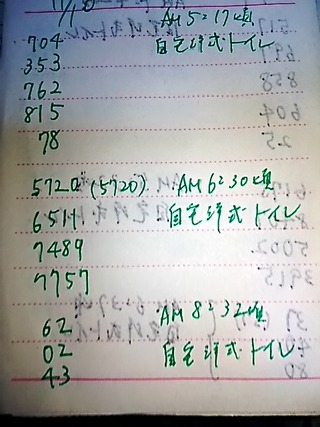 11/10
AM5:17頃
704 自宅洋式トイレ
353
762
815
78
572ロ(5720) AM6:30頃
6511 自宅洋式トイレ
7489
7757
AM8:32頃
62
02 自宅洋式トイレ
43